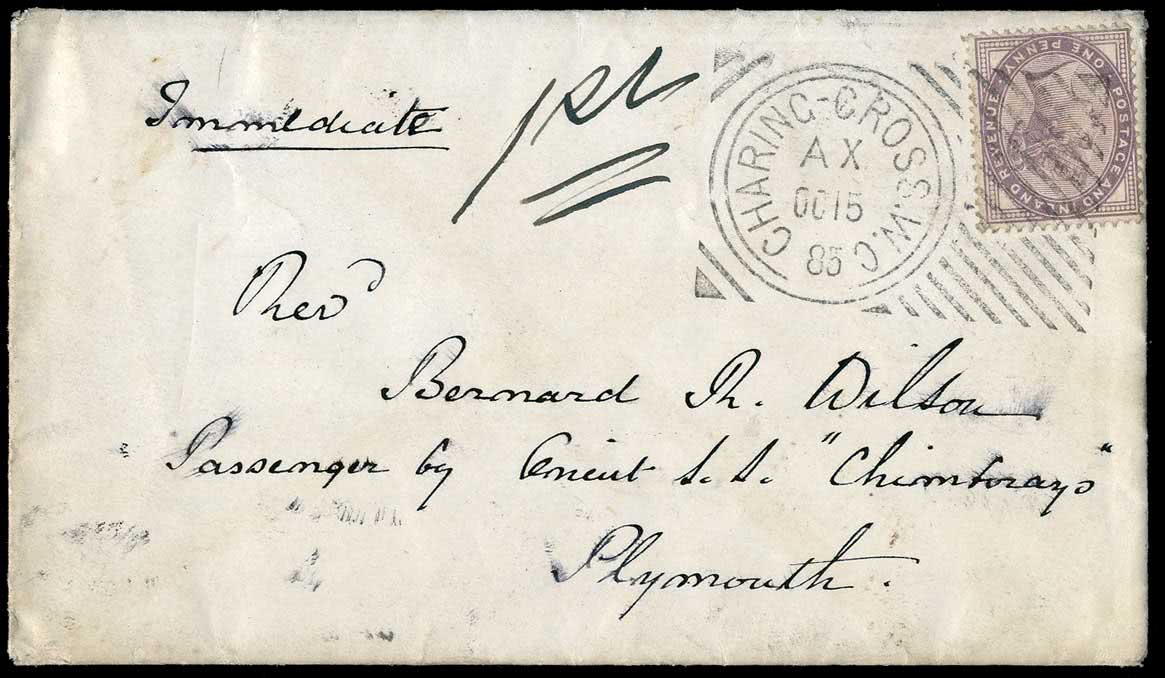 Immediate
1st
CHARING-CROSS.W.C.
AX
OC15
85
POSTAGE AND INLAND REVENUE
ONE PENNY
Revd
Bernard R. Wilson
Passenger by Orient S.S. "Chimborazo"
Plymouth.